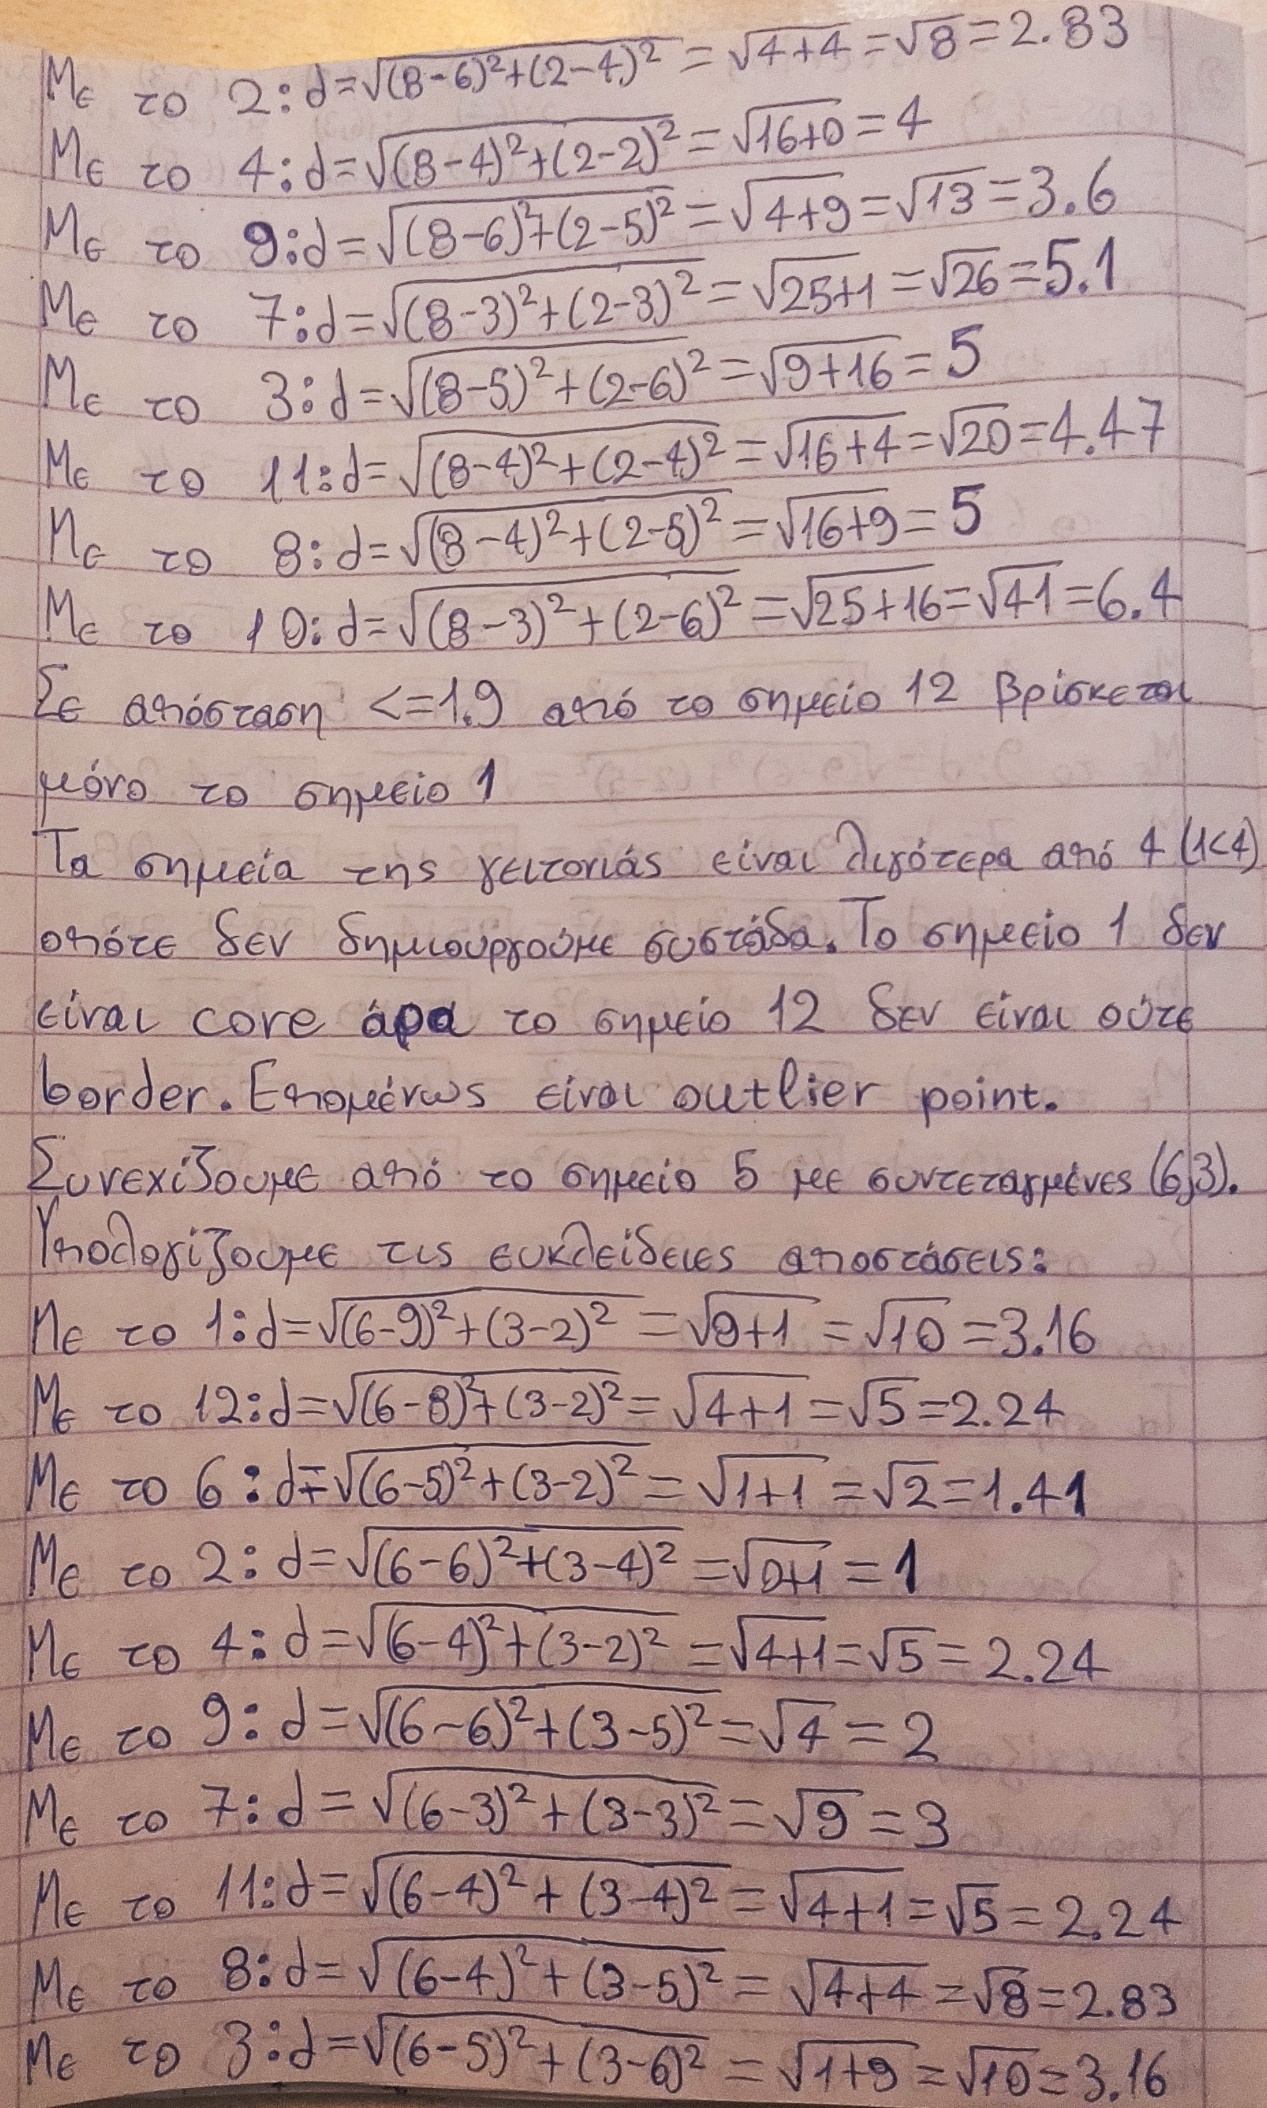 Με το 2: d=√(8-6)²+(2-4)² = √4+4 = √8 = 2.83
Με το 4: d=√(8-4)²+(2-2)² = √16+0 = 4
Με το 9: d=√(8-6)²+(2-5)² = √4+9 = √13 = 3.6
Με το 7: d=√(8-3)²+(2-3)² = √25+1 = √26 = 5.1
Με το 3: d=√(8-5)²+(2-6)² = √9+16 = 5
Με το 11: d=√(8-4)²+(2-4)² = √16+4 = √20 = 4.47
Με το 8: d=√(8-4)²+(2-5)² = √16+9 = 5
Με το 10: d=√(8-3)²+(2-6)² = √25+16 = √41 = 6.4
Σε απόσταση <=1.9 από το σημείο 12 βρίσκεται
μόνο το σημείο 1
Τα σημεία της γειτονιάς είναι λιγότερα από 4 (1<4)
οπότε δεν δημιουργούμε συστάδα. Το σημείο 1 δεν
είναι core άρα το σημείο 12 δεν είναι ούτε
border. Επομένως είναι outlier point.
Συνεχίζουμε από το σημείο 5 με συντεταγμένες (6,3).
Υπολογίζουμε τις ευκλείδειες αποστάσεις:
Με το 1: d=√(6-9)²+(3-2)² = √9+1 = √10 = 3.16
Με το 12: d=√(6-8)²+(3-2)² = √4+1 = √5 = 2.24
Με το 6: d=√(6-5)²+(3-2)² = √1+1 = √2 = 1.41
Με το 2: d=√(6-6)²+(3-4)² = √0+1 = 1
Με το 4: d=√(6-4)²+(3-2)² = √4+1 = √5 = 2.24
Με το 9: d=√(6-6)²+(3-5)² = √4 = 2
Με το 7: d=√(6-3)²+(3-3)² = √9 = 3
Με το 11: d=√(6-4)²+(3-4)² = √4+1 = √5 = 2.24
Με το 8: d=√(6-4)²+(3-5)² = √4+4 = √8 = 2.83
Με το 3: d=√(6-5)²+(3-6)² = √1+9 = √10 = 3.16